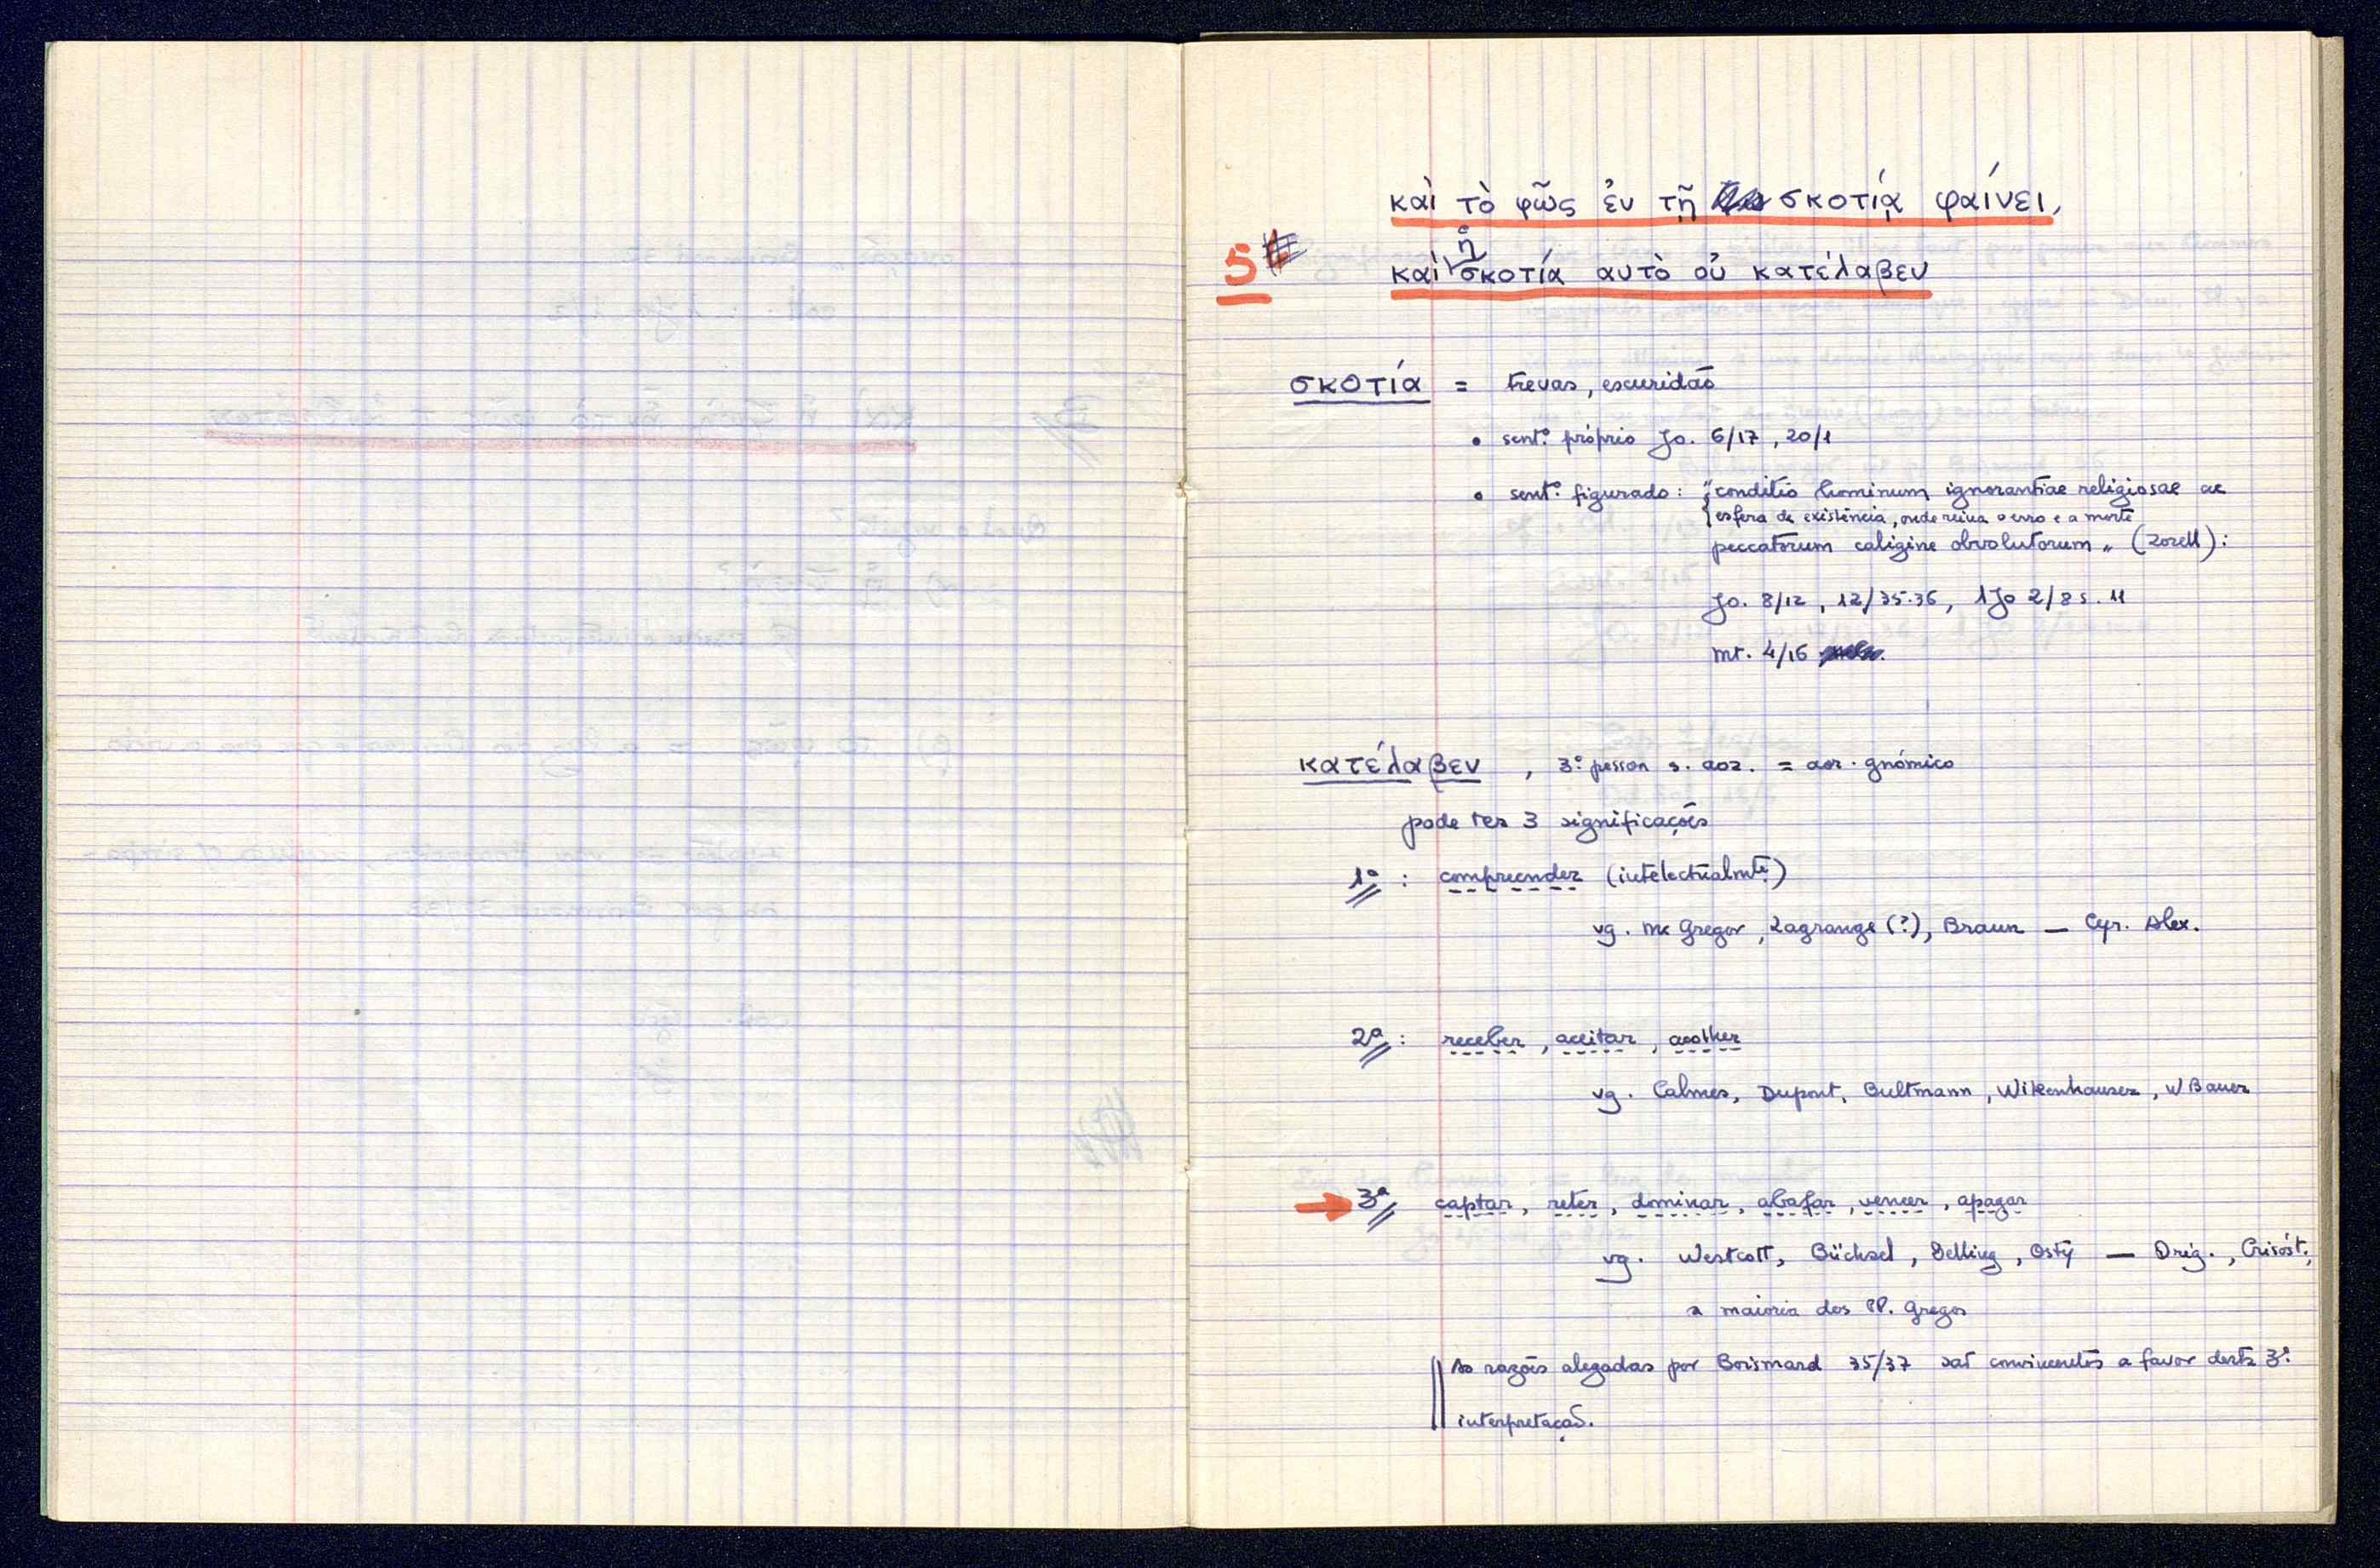 καὶ τὸ φῶς ἐν τῇ σκοτίᾳ φαίνει,
5 καὶ ἡ σκοτία αυτὸ οὐ κατέλαβεν
σκοτία = trevas, escuridão
• sent.º próprio Jo. 6/17, 20/1
• sent.º figurado: "conditio hominum ignorantiae religiosae ac
esfera de existência, onde reina o erro e a morte
peccatorum caligine obvolutorum" (Zorell):
Jo. 8/12, 12/35.36, 1 Jo 2/8 s. 11
Mt. 4/16
κατέλαβεν, 3.ª pessoa s. aor. = aor. gnómico
pode ter 3 significações
1ª: compreender (intelectualmte.)
vg. Mc Gregor, Lagrange (?), Braun — Cyr. Alex.
2ª: receber, aceitar, acolher
vg. Calmes, Dupont, Bultmann, Wikenhauser, W Bauer
3ª captar, reter, dominar, abafar, vencer, apagar
vg. Westcott, Büchsel, Delling, Osty — Orig., Crisóst.,
a maioria dos PP. Gregos
As razões alegadas por Boismard 35/37 são convincentes a favor desta 3.ª
interpretação.